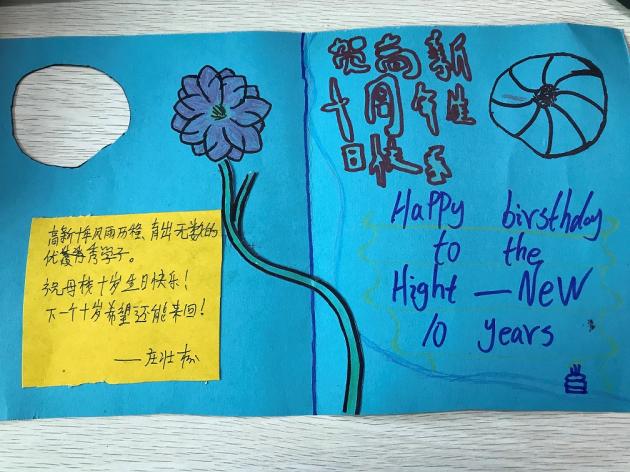 高新十年风雨历程、有出无数的
优秀学子。
祝母校十岁生日快乐！
下一个十岁希望还能来回！
——庄壮栋
贺高新
十周年生
日快乐
Happy birsthday
to the
Hight—New
10 years